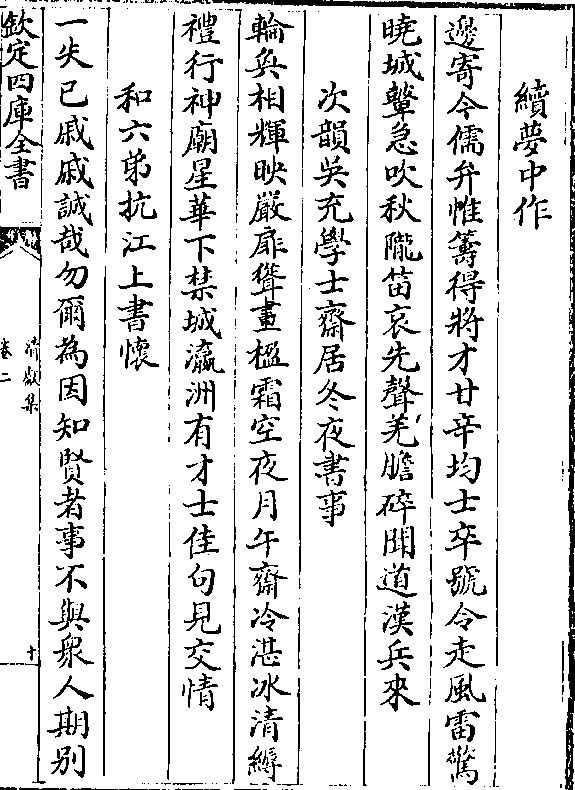 續夢中作
邊寄今儒弁帷籌得將才甘辛均士卒號令走風雷驚
曉城鼙急吹秋隴笛哀先聲羌膽碎聞道漢兵來
次韻吳充學士齋居冬夜書事
輪奐相輝映嚴扉聳畫楹霜空夜月午齋冷湛冰清縟
禮行神廟星華下禁城瀛洲有才士佳句見交情
和六弟抗江上書懷
一失已戚戚誠哉勿爾為因知賢者事不與衆人期別
欽定四庫全書
清獻集
卷二
十